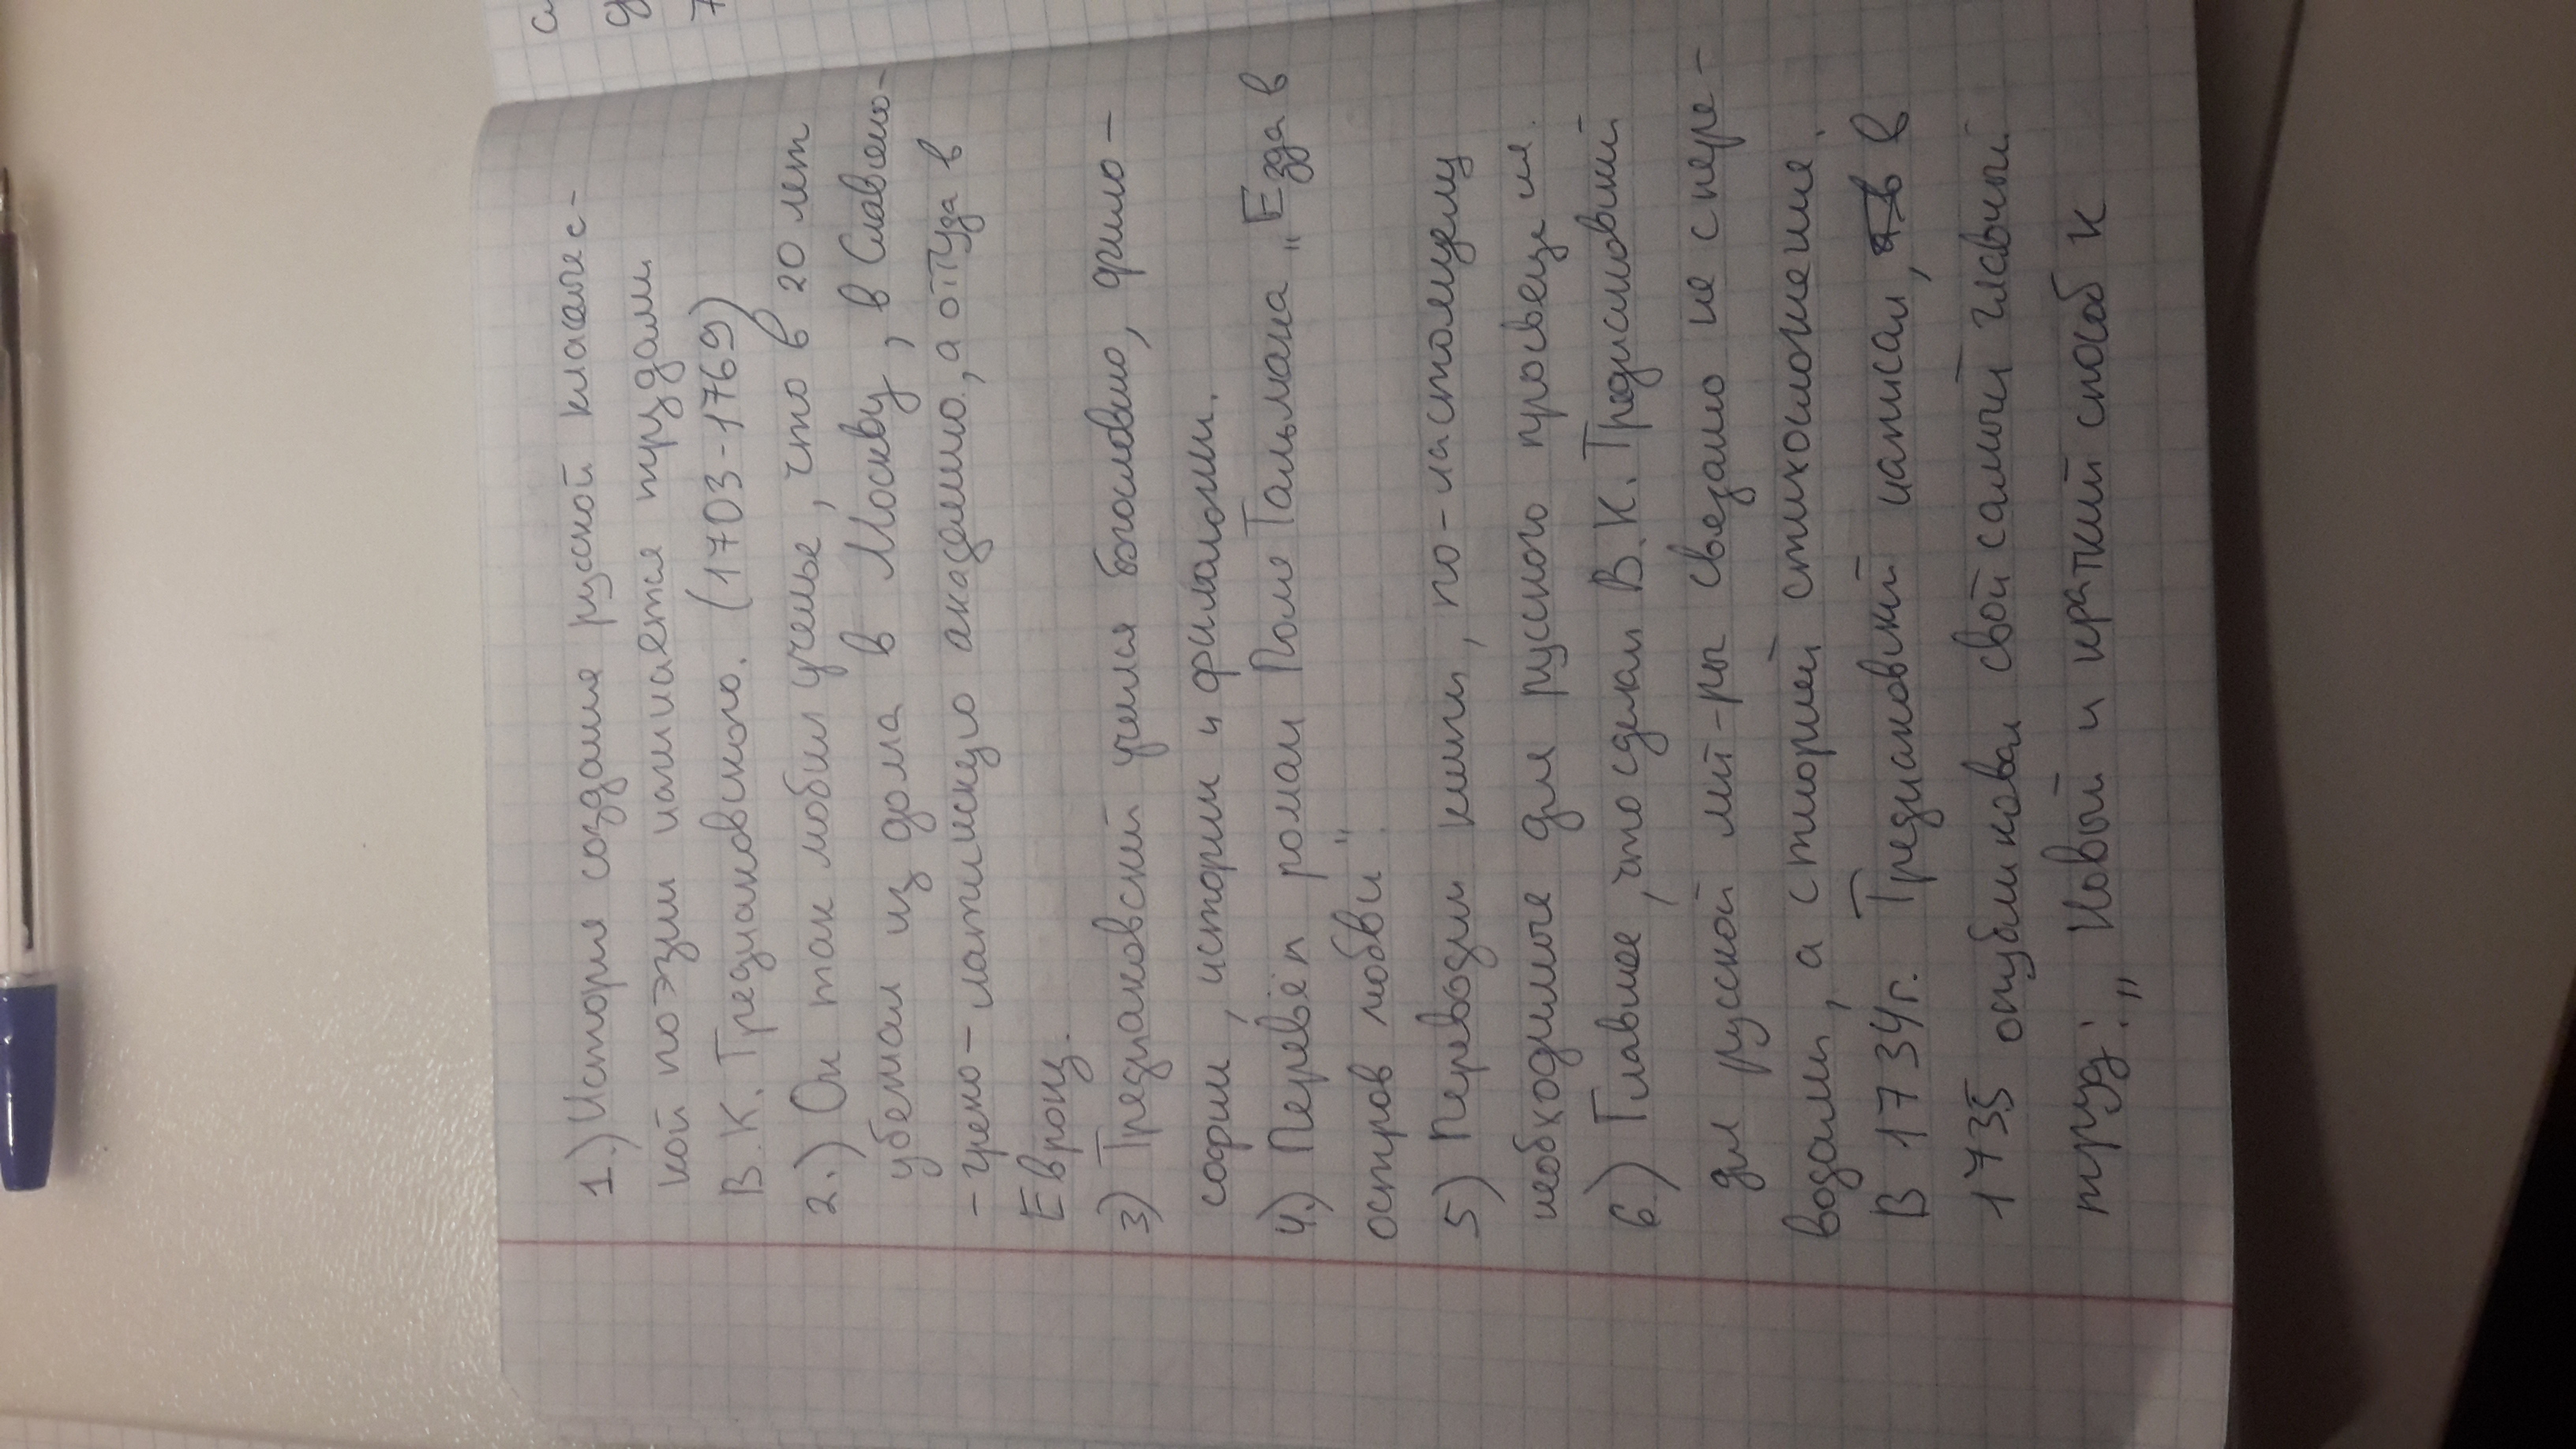 1.) История создания русской классичес-
кой поэзии начинается трудами
В.К. Тредиаковского. (1703-1769)
2.) Он так любил ученье, что в 20 лет
убежал из дома в Москву, в Славяно-
-греко-латинскую академию, а оттуда в
Европу.
3) Тредиаковский учился богословию, фило-
софии, истории и филологии.
4.) Перевёл роман Поля Тальмана „Езда в
остров любви".
5) Переводил книги, по-настоящему
необходимые для русского просвещ-ия.
6.) Главное, что сделал В.К. Тредиаковский
для русской лит-ры связано не с пере-
водами, а с теорией стихосложение.
В 1734г. Тредиаковский написал, в
1735 опубликовал свой самый главный
труд: „Новый и краткий способ к